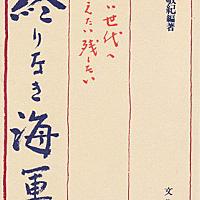 紀編著
文
い世代へ
えたい残したい
終りなき海軍